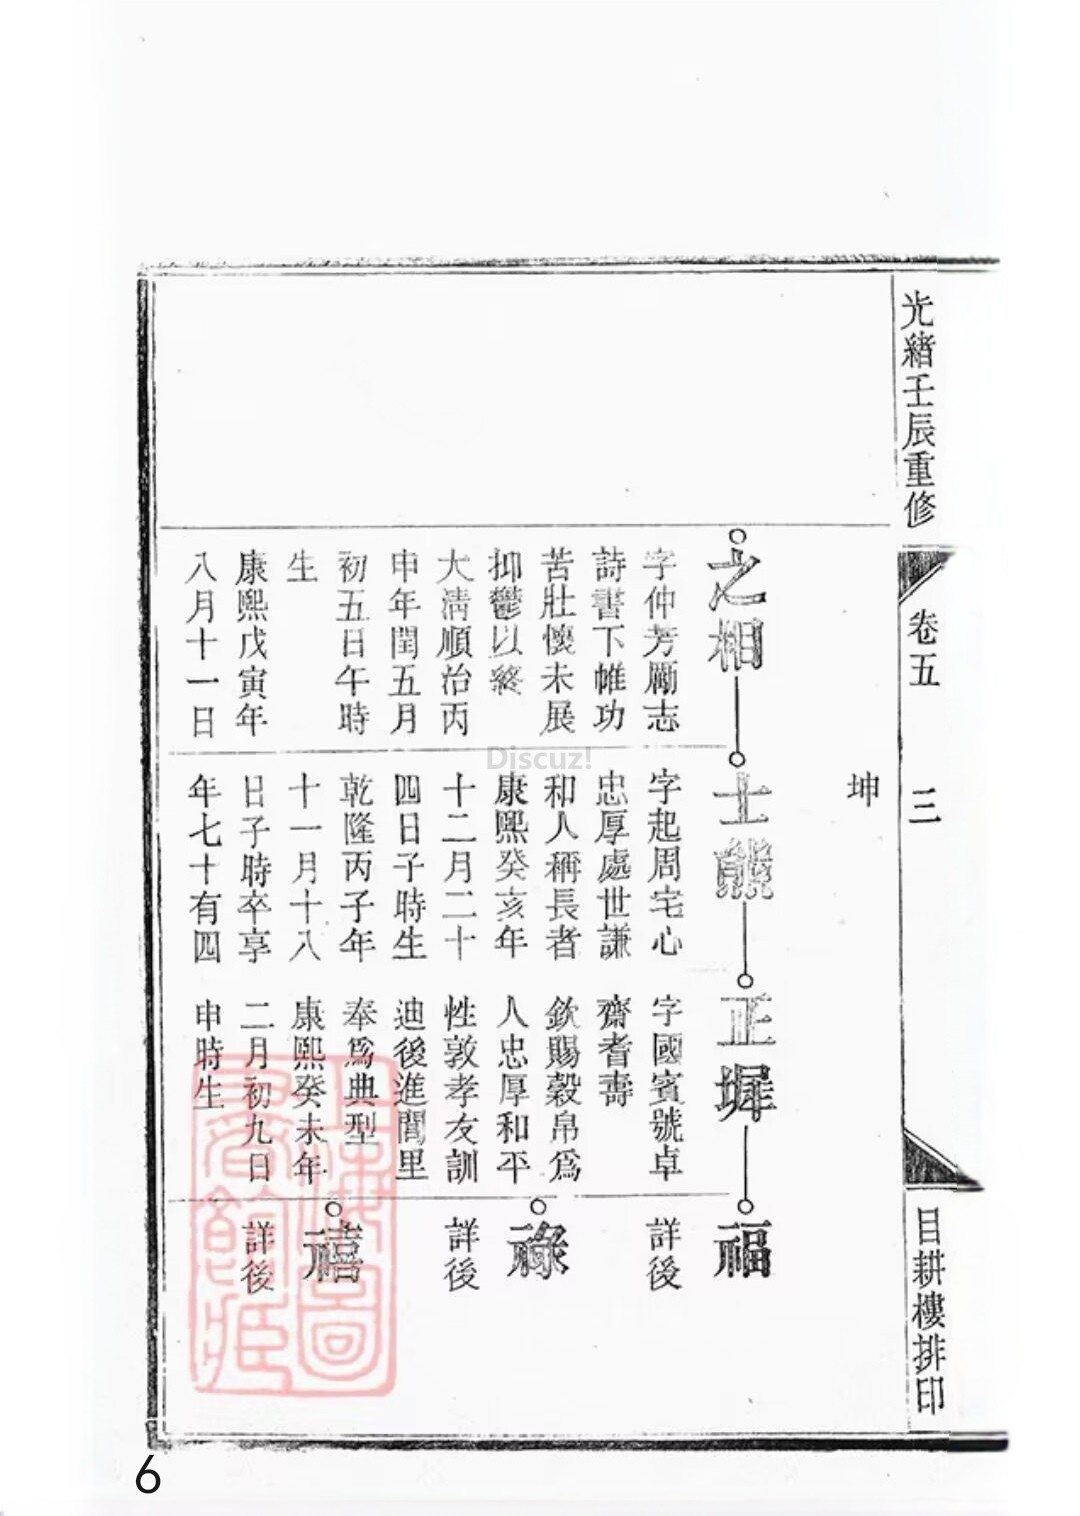 光緒壬辰重修
卷五
三
目耕樓排印
坤
之相
字仲芳勵志
詩書下帷功
苦壯懷未展
抑鬱以終
大淸順治丙
申年閏五月
初五日午時
生
康熙戊寅年
八月十一日
士熊
字起周宅心
忠厚處世謙
和人稱長者
康熙癸亥年
十二月二十
四日子時生
乾隆丙子年
十一月十八
日子時卒享
年七十有四
正墀
字國賓號卓
齋耆壽
欽賜榖帛爲
人忠厚和平
性敦孝友訓
迪後進閭里
奉爲典型
康熙癸未年
二月初九日
申時生
福
詳後
祿
詳後
禧
詳後
上海圖
書館藏
Discuz!
6